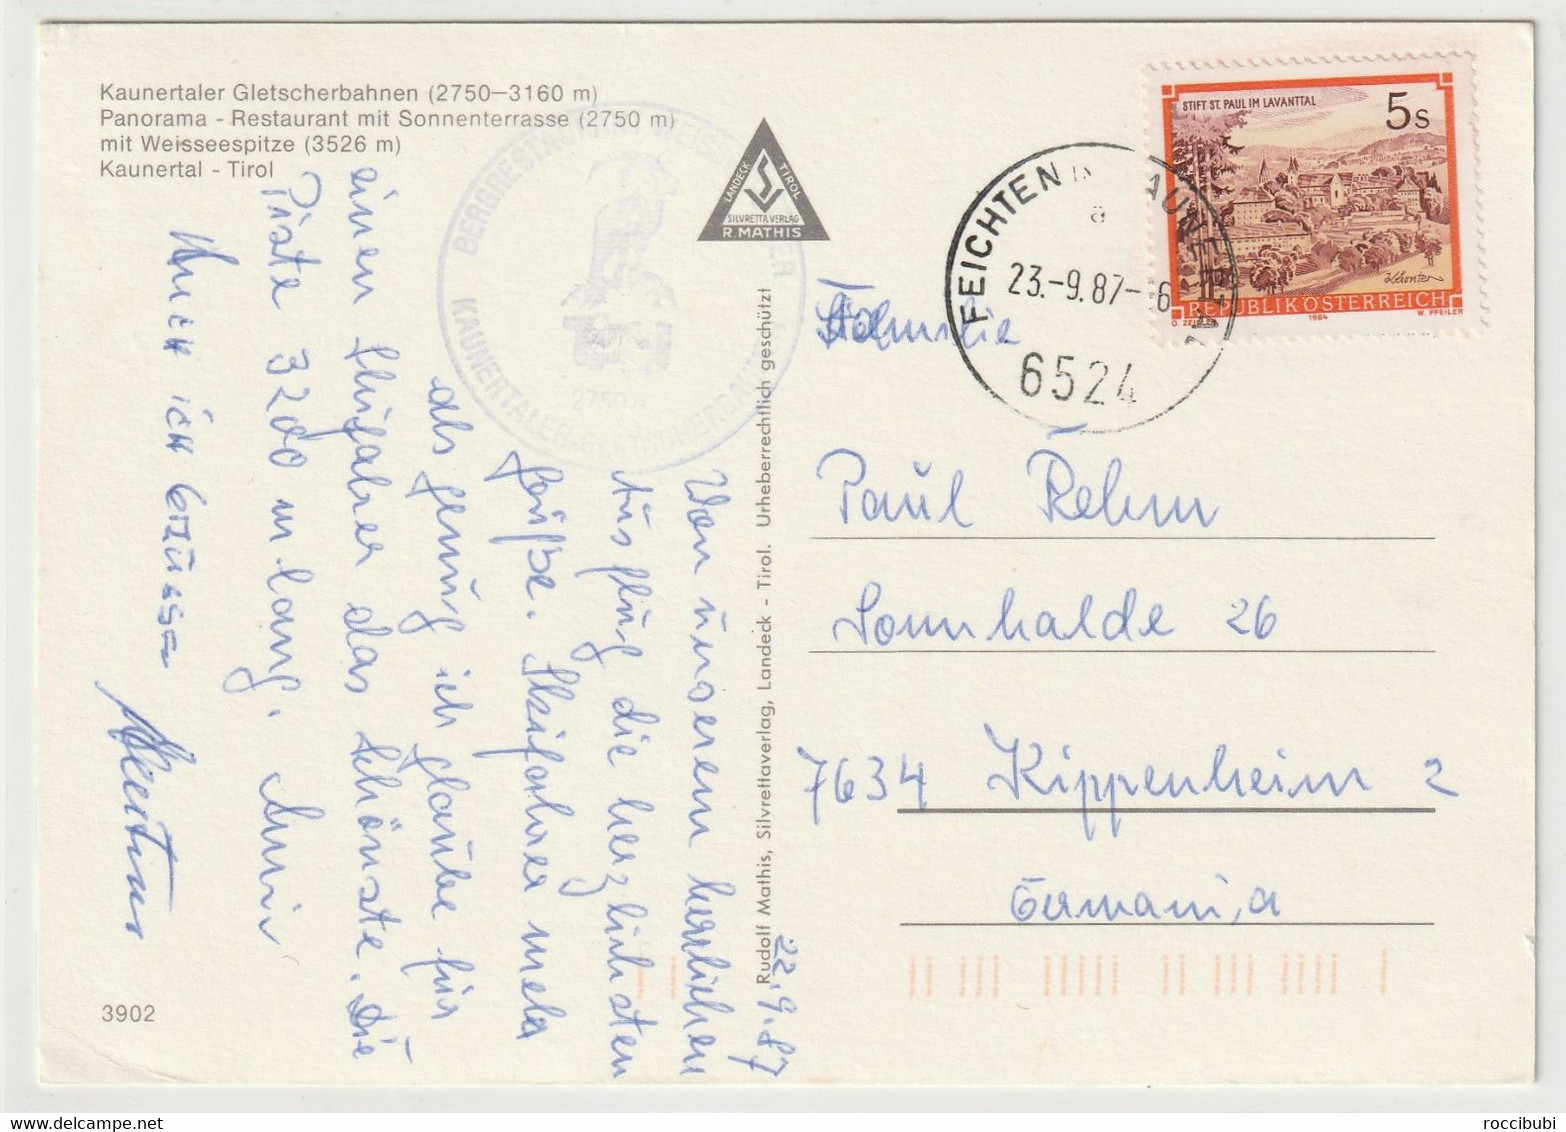 Kaunertaler Gletscherbahnen (2750–3160 m)
Panorama - Restaurant mit Sonnenterrasse (2750 m)
mit Weisseespitze (3526 m)
Kaunertal - Tirol
KAUNERTALER-GLETSCHERBAHN
2750
LANDECK TIROL
SILVRETTA VERLAG
R. MATHIS
FEICHTEN IM KAUNERTAL
a
23.-9.87-6
6524
STIFT ST. PAUL IM LAVANTTAL
5s
Kärnten
REPUBLIK ÖSTERREICH
1984
W. PFEILER
Rudolf Mathis, Silvrettaverlag, Landeck - Tirol. Urheberrechtlich geschützt
22.9.87
Von unserem herrlichen
Ausflug die herzlichsten
Grüße. Skifahrer mehr
als genug ich glaube für
einen Skifahrer das schönste. Die
Piste 3200 m lang.
Auch ich grüsse
Familie
Paul Rehm
Sonnhalde 26
7634 Kippenheim 2
Germania
3902
roccibubi